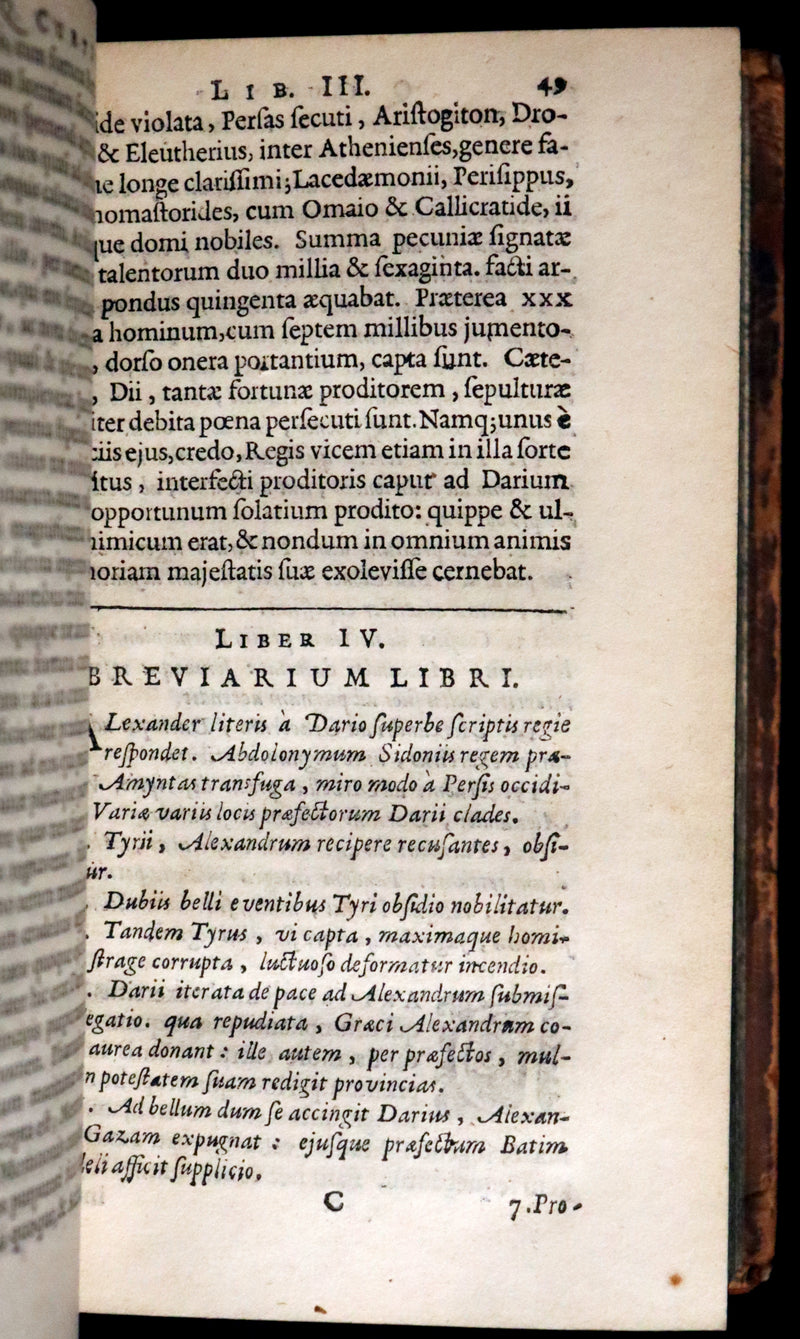 LIB. III. 49
ide violata, Perſas ſecuti, Ariſtogiton, Dro-
& Eleutherius, inter Athenienſes,genere fa-
ie longe clariſſimi;Lacedæmonii, Periſippus,
nomaſtorides, cum Omaio & Callicratide, ii
que domi nobiles. Summa pecuniæ ſignatæ
talentorum duo millia & ſexaginta. facti ar-
pondus quingenta æquabat. Præterea xxx
a hominum,cum ſeptem millibus jumento-
, dorſo onera portantium, capta ſunt. Cæte-
, Dii, tantæ fortunæ proditorem, ſepulturæ
iter debita pœna perſecuti ſunt.Namq;unus è
ciis ejus,credo,Regis vicem etiam in illa ſorte
itus, interfecti proditoris caput ad Darium
opportunum ſolatium prodito: quippe & ul-
nimicum erat,& nondum in omnium animis
noriam majeſtatis ſuæ exoleviſſe cernebat.
LIBER IV.
BREVIARIUM LIBRI.
ALexander literis a Dario ſuperbe ſcriptis regie
reſpondet. Abdolonymum Sidoniis regem præ-
Amyntas transfuga, miro modo a Perſis occidi-
Variæ variis locis præfectorum Darii clades.
. Tyrii, Alexandrum recipere recuſantes, obſi-
ur.
. Dubiis belli eventibus Tyri obſidio nobilitatur.
. Tandem Tyrus, vi capta, maximaque homi-
ſtrage corrupta, luctuoſo deformatur incendio.
. Darii iterata de pace ad Alexandrum ſubmiſ-
egatio. qua repudiata, Græci Alexandrum co-
aurea donant: ille autem, per præfectos, mul-
n poteſtatem ſuam redigit provincias.
. Ad bellum dum ſe accingit Darius, Alexan-
Gazam expugnat: ejuſque præfectum Batim
leli afficit ſupplicio.
C 7.Pro-